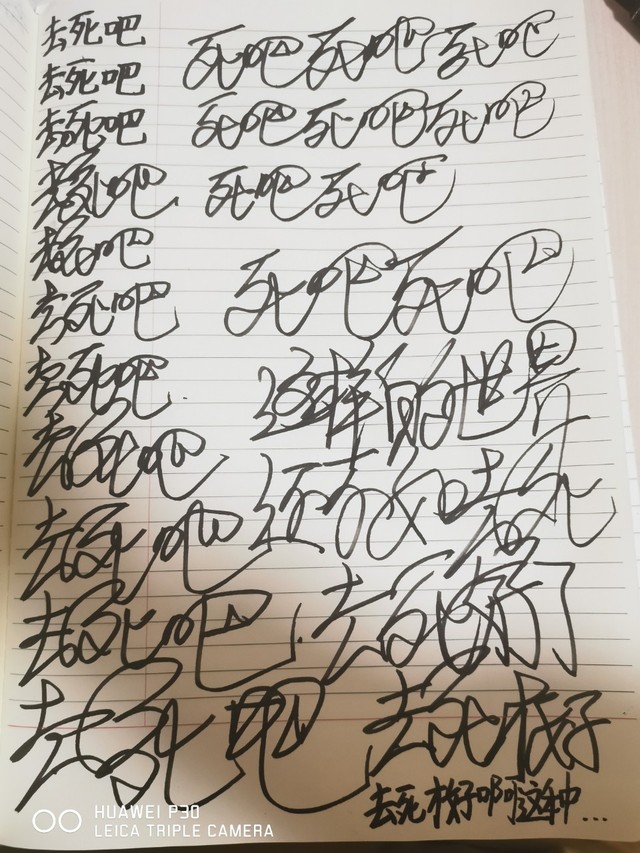 去死吧 死吧死吧死吧
去死吧
去死吧 死吧死吧死吧
去死吧 死吧死吧
去死吧
去死吧 死吧死吧
去死吧 这样的世界
去死吧
去死吧 还不如去死
去死吧 去死好了
去死吧 去死才好
去死 这种...
HUAWEI P30
LEICA TRIPLE CAMERA